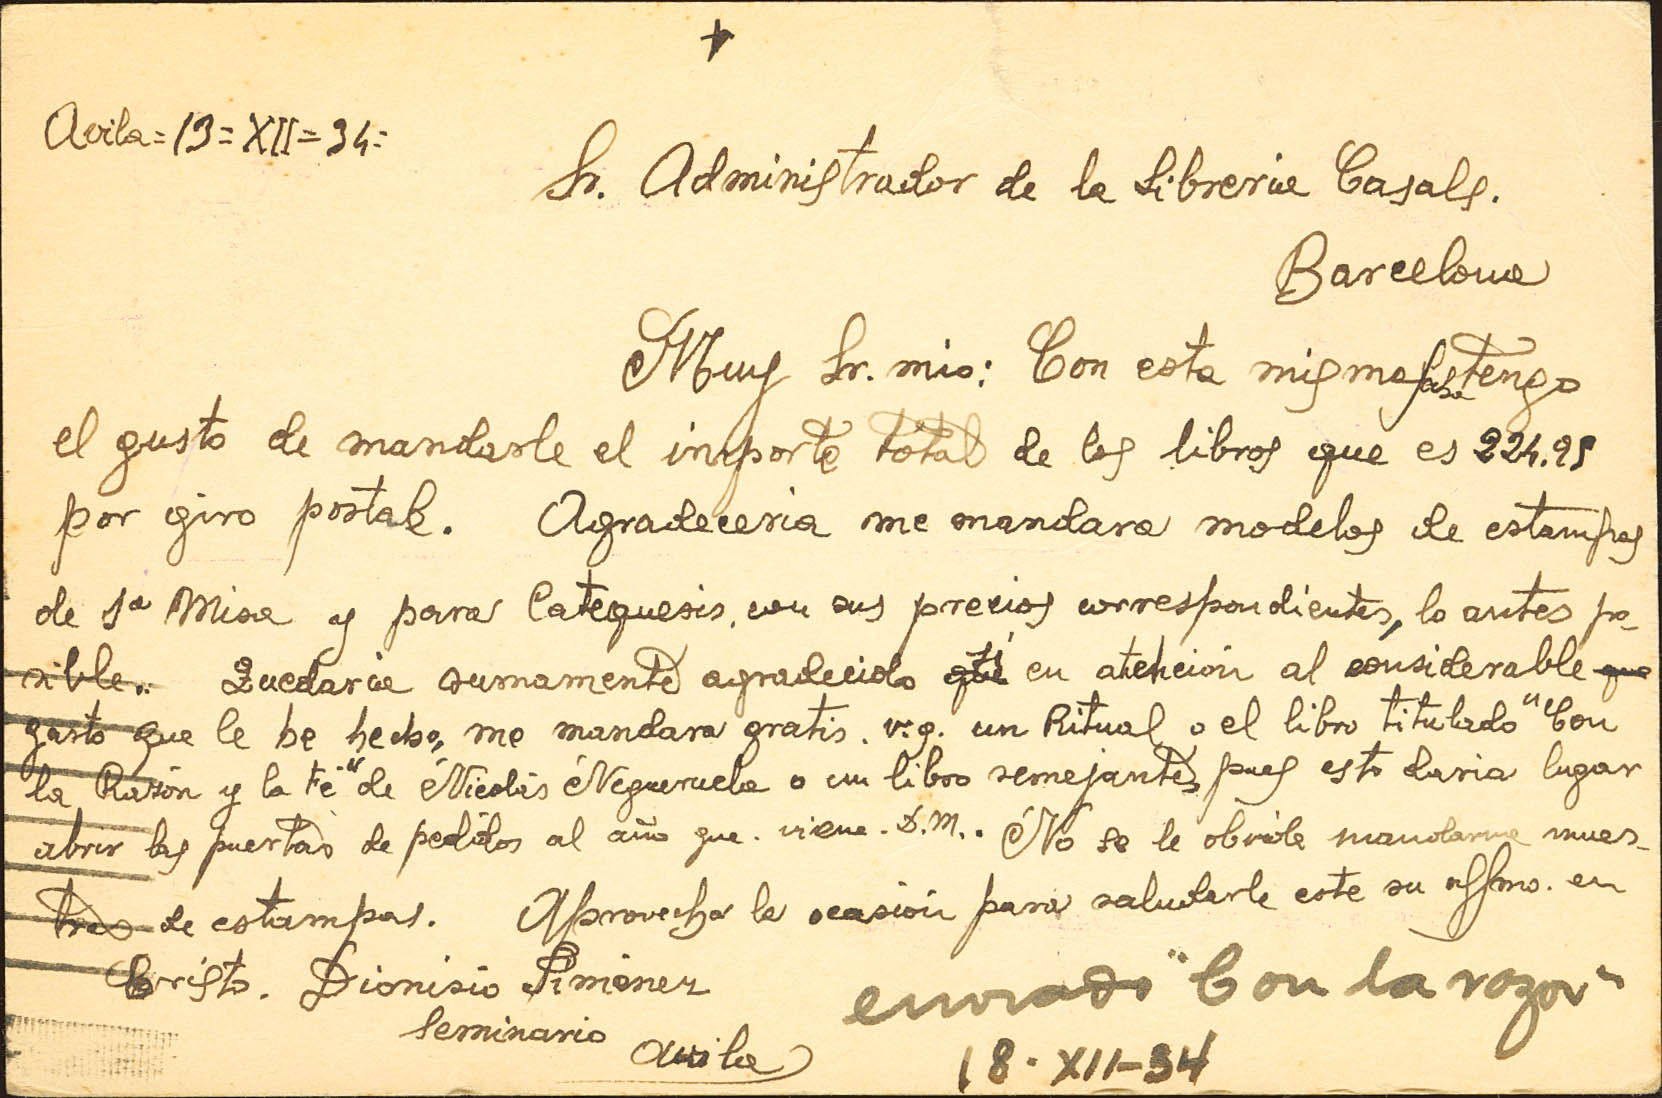 Avila = 13 = XII = 34 =
Sr. Administrador de la Libreria Casals.
Barcelona
Muy Sr. mio: Con esta misma fecha tengo
el gusto de mandarle el importe total de los libros que es 224.25
por giro postal. Agradeceria me mandara modelos de estampas
de 1ª Misa y para Catequesis, con sus precios correspondientes, lo antes po-
sible.. Quedaria sumamente agradecido si en atención al considerable
gasto que le he hecho, me mandara gratis. v.g. un Ritual o el libro titulado "Con
la Razón y la Fé" de Nicolás Negueruela o un libro semejante, pues esto daria lugar
abrir las puertas de pedidos al año que viene. D.M.. No se le olvide mandarme mues-
tras de estampas. Aprovecha la ocasión para saludarle este su affmo. en
Cristo. Dionisio Jiménez
Seminario
Avila
enviado "Con la razon"
18 · XII - 34